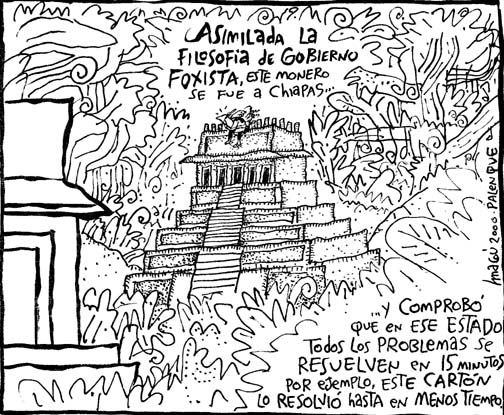 ASIMILADA LA
FILOSOFÍA DE GOBIERNO
FOXISTA, ESTE MONERO
SE FUE A CHIAPAS...
...Y COMPROBÓ
QUE EN ESE ESTADO
TODOS LOS PROBLEMAS SE
RESUELVEN EN 15 MINUTOS
POR EJEMPLO, ESTE CARTÓN
LO RESOLVIÓ HASTA EN MENOS TIEMPO
MAGÚ 2000 PALENQUE